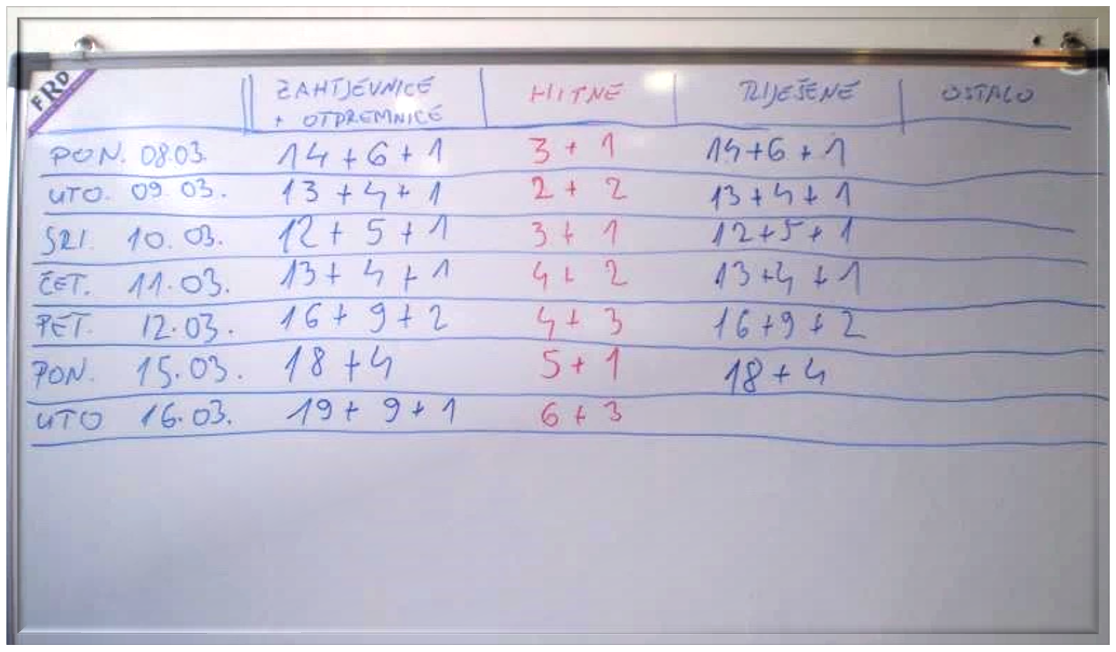 FRD
ZAHTJEVNICE + OTPREMNICE HITNE RIJEŠENE OSTALO
PON. 08.03. 14+6+1 3+1 14+6+1
UTO. 09.03. 13+4+1 2+2 13+4+1
SRI. 10.03. 12+5+1 3+1 12+5+1
ČET. 11.03. 13+4+1 4+2 13+4+1
PET. 12.03. 16+9+2 4+3 16+9+2
PON. 15.03. 18+4 5+1 18+4
UTO 16.03. 19+9+1 6+3